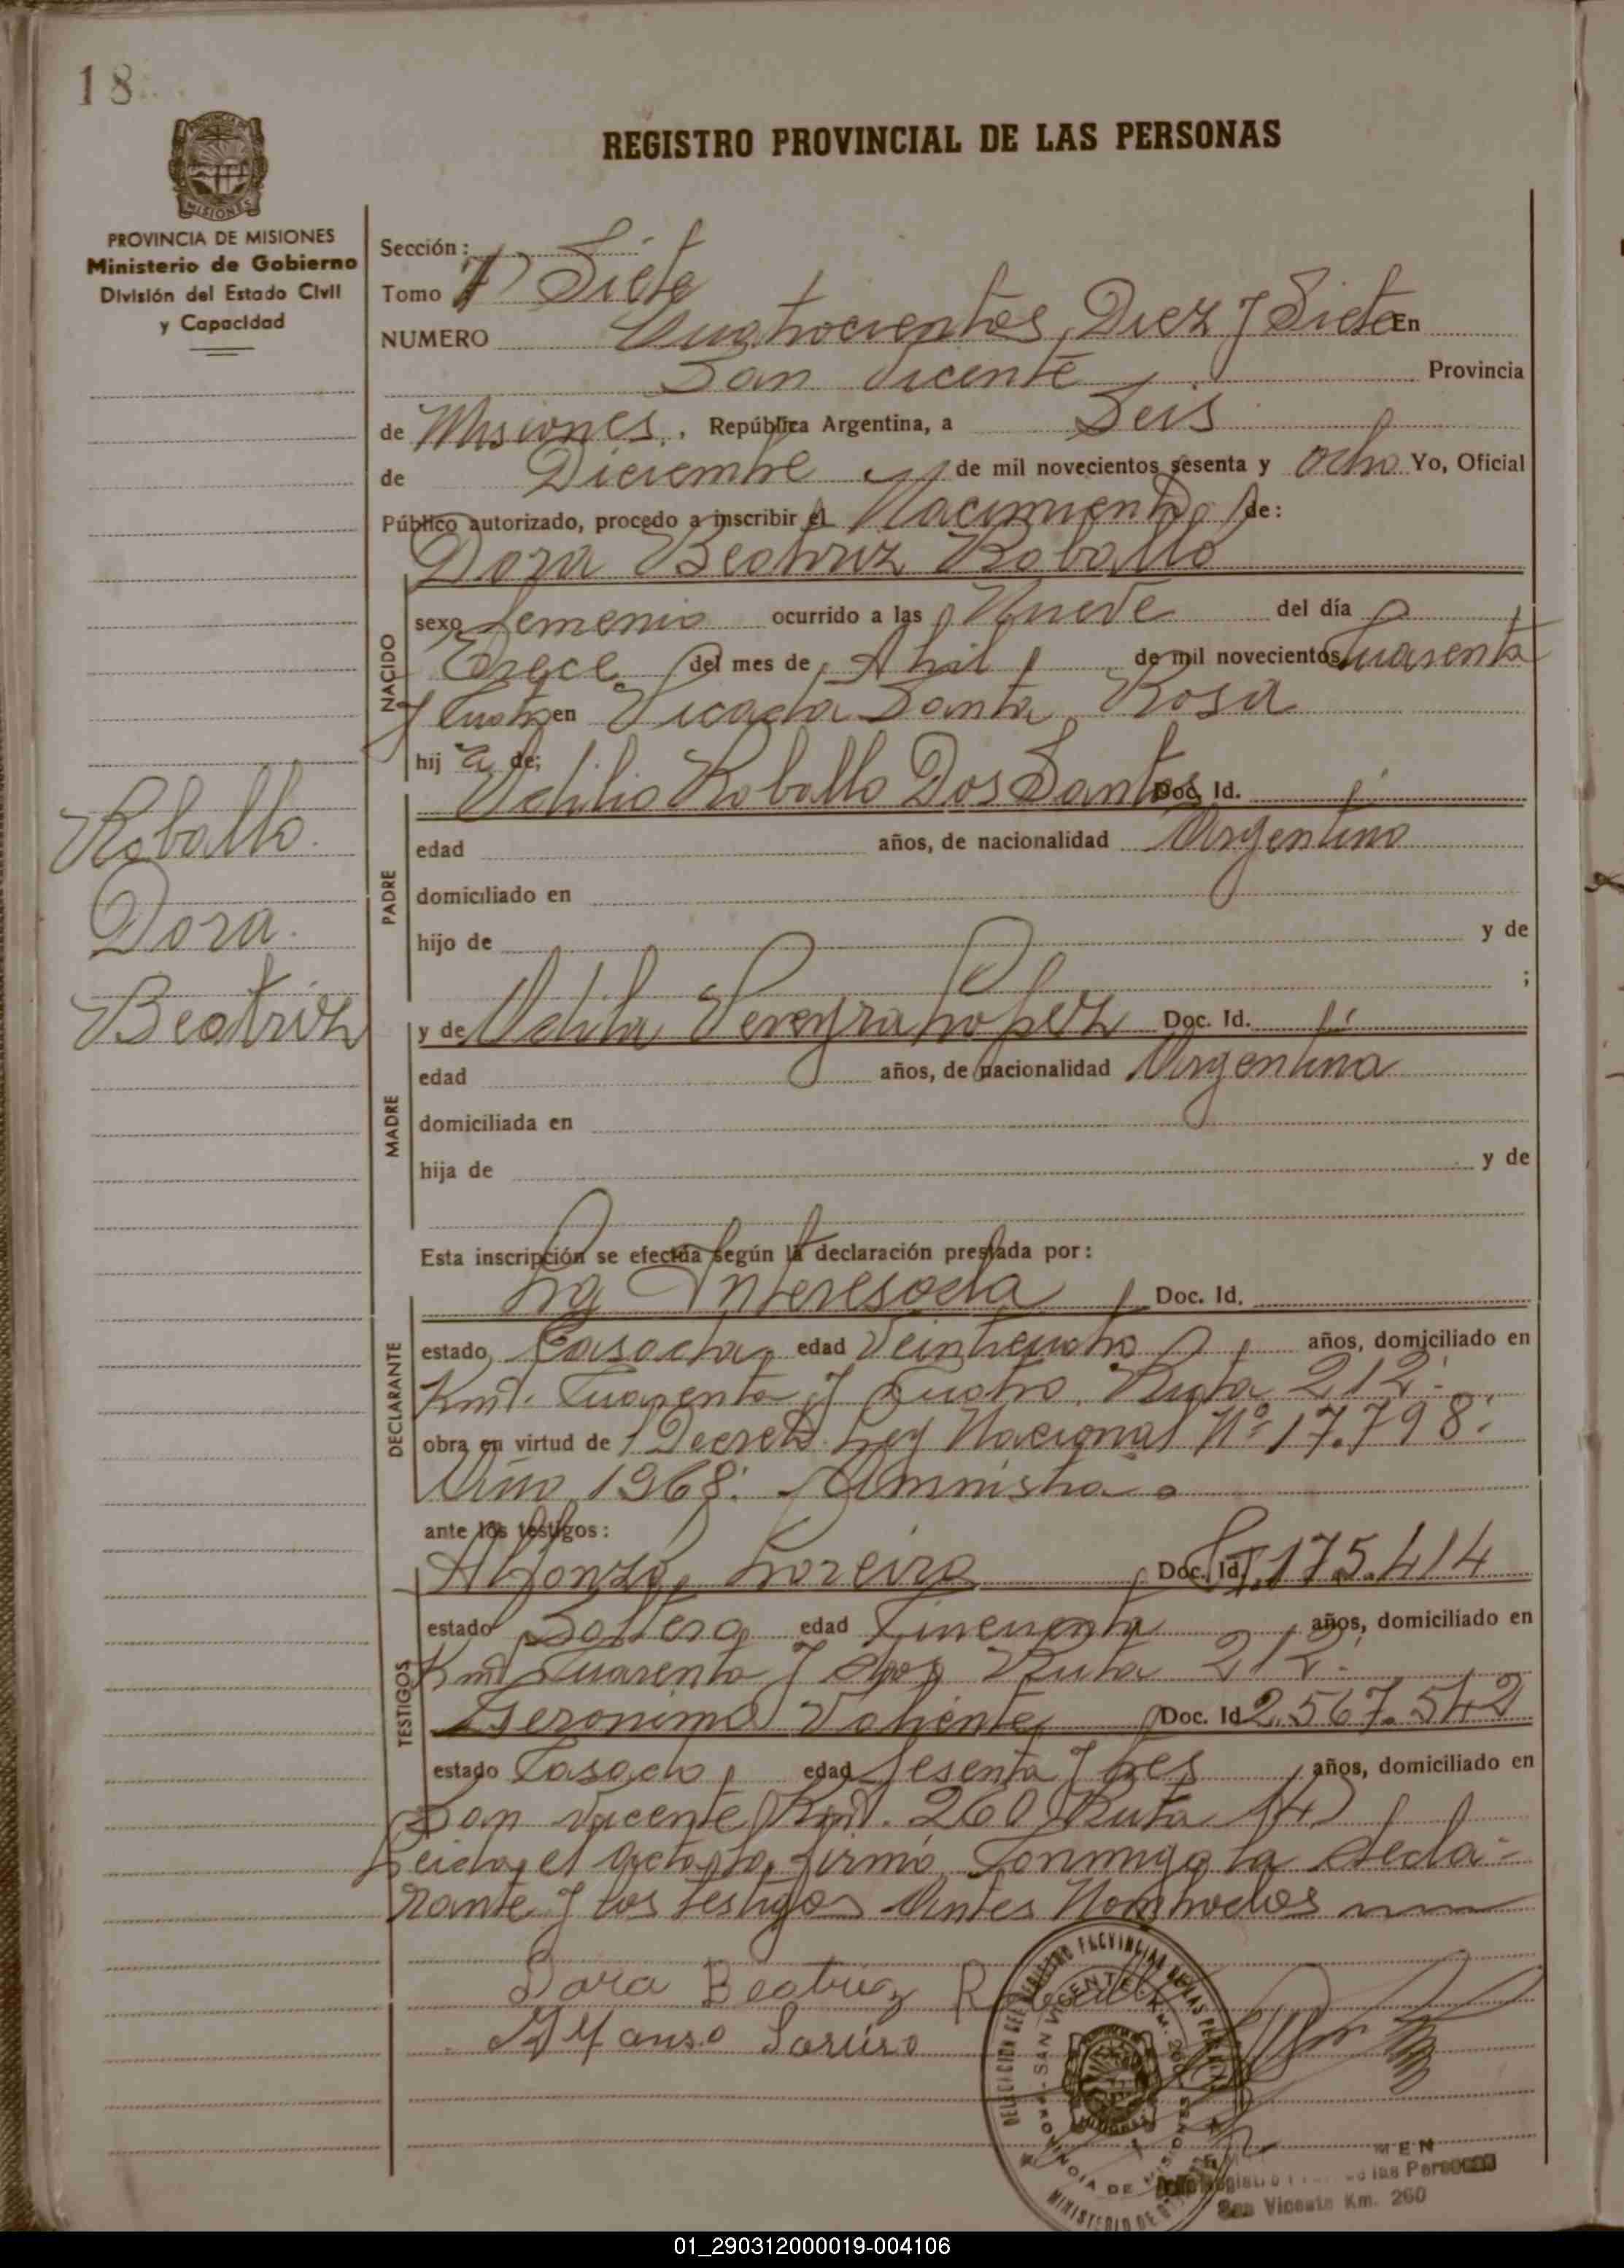 18
REGISTRO PROVINCIAL DE LAS PERSONAS
MISIONES
PROVINCIA DE MISIONES
Ministerio de Gobierno
División del Estado Civil
y Capacidad
Sección: Siete
Tomo Siete
NUMERO Cuatrocientos Diez y Siete En
San Vicente Provincia
de Misiones. República Argentina, a Seis
de Diciembre de mil novecientos sesenta y ocho Yo, Oficial
Público autorizado, procedo a inscribir el Nacimiento de:
Dora Beatriz Roballo
NACIDO
sexo femenio ocurrido a las Nueve del día
Trece del mes de Abril de mil novecientos Cuarenta
y Cuatro en Picada Santa Rosa
hij a de:
Odilio Roballo Dos Santos Doc. Id.
PADRE
edad años, de nacionalidad Argentino
domiciliado en
hijo de y de
;
Roballo.
Dora.
Beatriz
MADRE
y de Odila Pereyra Lopez Doc. Id.
edad años, de nacionalidad Argentina
domiciliada en
hija de y de
Esta inscripción se efectúa según la declaración prestada por:
La Interesada Doc. Id.
DECLARANTE
estado Casada edad Veinticuatro años, domiciliado en
Km. Cuarenta y Cuatro, Ruta 212.
obra en virtud de Decreto Ley Nacional Nº 17.798.
Año 1968. Amnistia
ante los testigos:
TESTIGOS
Alfonzo, Loreiro Doc. Id. 175.414
estado Soltero edad Cincuenta años, domiciliado en
Km. Cuarenta y Dos Ruta 212.
Geronimo Valiente Doc. Id 2.567.542
estado Casado edad Sesenta y tres años, domiciliado en
San Vicente Km. 260 Ruta 14
Leida el Acta, la firmó Conmigo la decla-
rante y los testigos Antes Nombrados
Dora Beatriz Roballo
Alfonso
SAN VICENTE KM. 260
PROVINCIA DE MISIONES
las Personas
San Vicente Km. 260
01_290312000019-004106